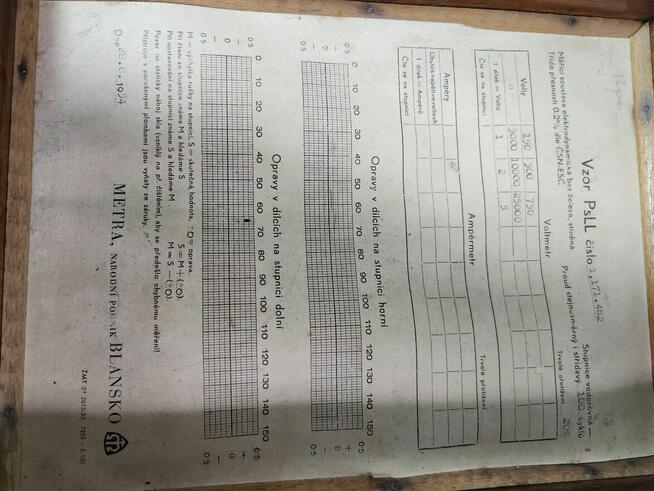 Vzor PsLL číslo 1,171.482
Stupnice vodorovná —
Měřicí soustava elektrodynamická bez železa, stíněná
Proud stejnosměrný i střídavý 100 cyklů
Třída přesnosti 0.2% dle ČSN-ESČ
Trvale přetížení 20%
Voltmetr
Volty 150 300 750
Ω 5000 10000 25000
1 dílek = Voltů 1 2 5
Čte se na stupnici
Ampérmetr
Trvale přetížení
Ampéry
1 dílek = Ampérů
Čte se na stupnici
Opravy v dílcích na stupnici horní
0.5 + 0 — 0.5
0 10 20 30 40 50 60 70 80 90 100 110 120 130 140 150
0.5 + 0 — 0.5
Opravy v dílcích na stupnici dolní
0.5 + 0 — 0.5
0 10 20 30 40 50 60 70 80 90 100 110 120 130 140 150
0.5 + 0 — 0.5
M = výchylka ručky na stupnici, S = skutečná hodnota, ±O = oprava.
Při čtení ze stupnice známe M a hledáme S S = M + (±O).
Při nastavování na stupnici známe S a hledáme M M = S — (±O).
Pozor na statický náboj skla (vzniklý na př. čištěním), aby se předešlo chybnému měření!
Přístroje s porušenými plombami jsou vyňaty ze záruky.
Dne 1954
METRA, NÁRODNÍ PODNIK BLANSKO